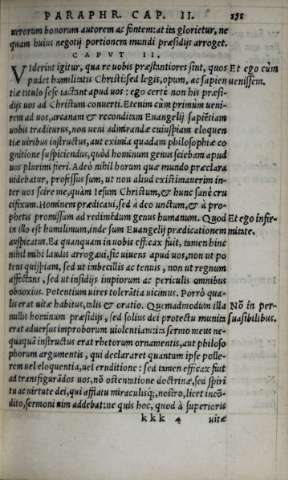 PARAPHR. CAP. II. 251
uerorum bonorum autorem ac fontem: at ita glorietur, ne
quam huius negotij portionem mundi præsidijs arroget.
CAPVT II.
Viderint igitur, qua re uobis præstantiores sint, quos Et ego cùm
pudet humilitatis Christi: sed legis, opum, ac sapien uenissem.
tiæ titulo sese iactant apud uos: ego certè non his præsi-
dijs uos ad Christum conuerti. Etenim cùm primùm ueni-
rem ad uos, arcanam & reconditam Euangelij sapiētiam
uobis traditurus, non ueni admirandæ cuiuspiam eloquen
tiæ uiribus instructus, aut eximia quadam philosophiæ co
gnitione suspiciendus, quòd hominum genus sciebam apud
uos plurimi fieri. Adeò nihil horum quæ mundo præclara
uidebatur, professus sum, ut non aliud existimauerim in-
ter uos scire me, quàm Iesum Christum, & hunc sanè cru
cifixum. Hominem prædicaui, sed à deo unctum, & à pro-
phetis promissum ad redimēdum genus humanum. Quod Et ego infir-
in illo est humilimum, inde sum Euangelij prædicationem mitate.
auspicatus. Ea quanquam in uobis efficax fuit, tamen hinc
nihil mihi laudis arrogaui, sic uiuens apud uos, non ut po
tens quispiam, sed ut imbecillis ac tenuis, non ut regnum
affectans, sed ut insidijs impiorum ac periculis omnibus
obnoxius. Potentiam uires tolerātia uicimus. Porrò qua-
lis erat uitæ habitus, talis & oratio. Quemadmodum illa Nō in per-
nullis hominum præsidijs, sed solius dei protectu munita suasibilibus.
erat aduersus improborum uiolentiam: ita sermo meus ne-
quaquā instructus erat rhetorum ornamentis, aut philoso
phorum argumentis, qui declararet quantum ipse polle-
rem uel eloquentia, uel eruditione: sed tamen efficax fuit
ad transfigurādos uos, nō ostentatione doctrinæ, sed spiri
tu ac uirtute dei, qui afflatu miraculisq́;, nostro, licet incō-
dito, sermoni uim addebat: ne quis hoc, quod à superioris
k k k 4 uitæ